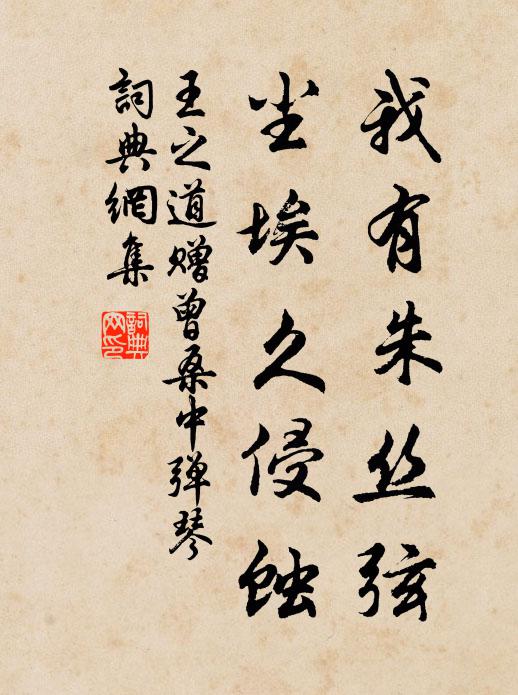 我有朱丝弦
尘埃久侵蚀
王之道赠曾桑中弹琴
詞典網集
詞典網印